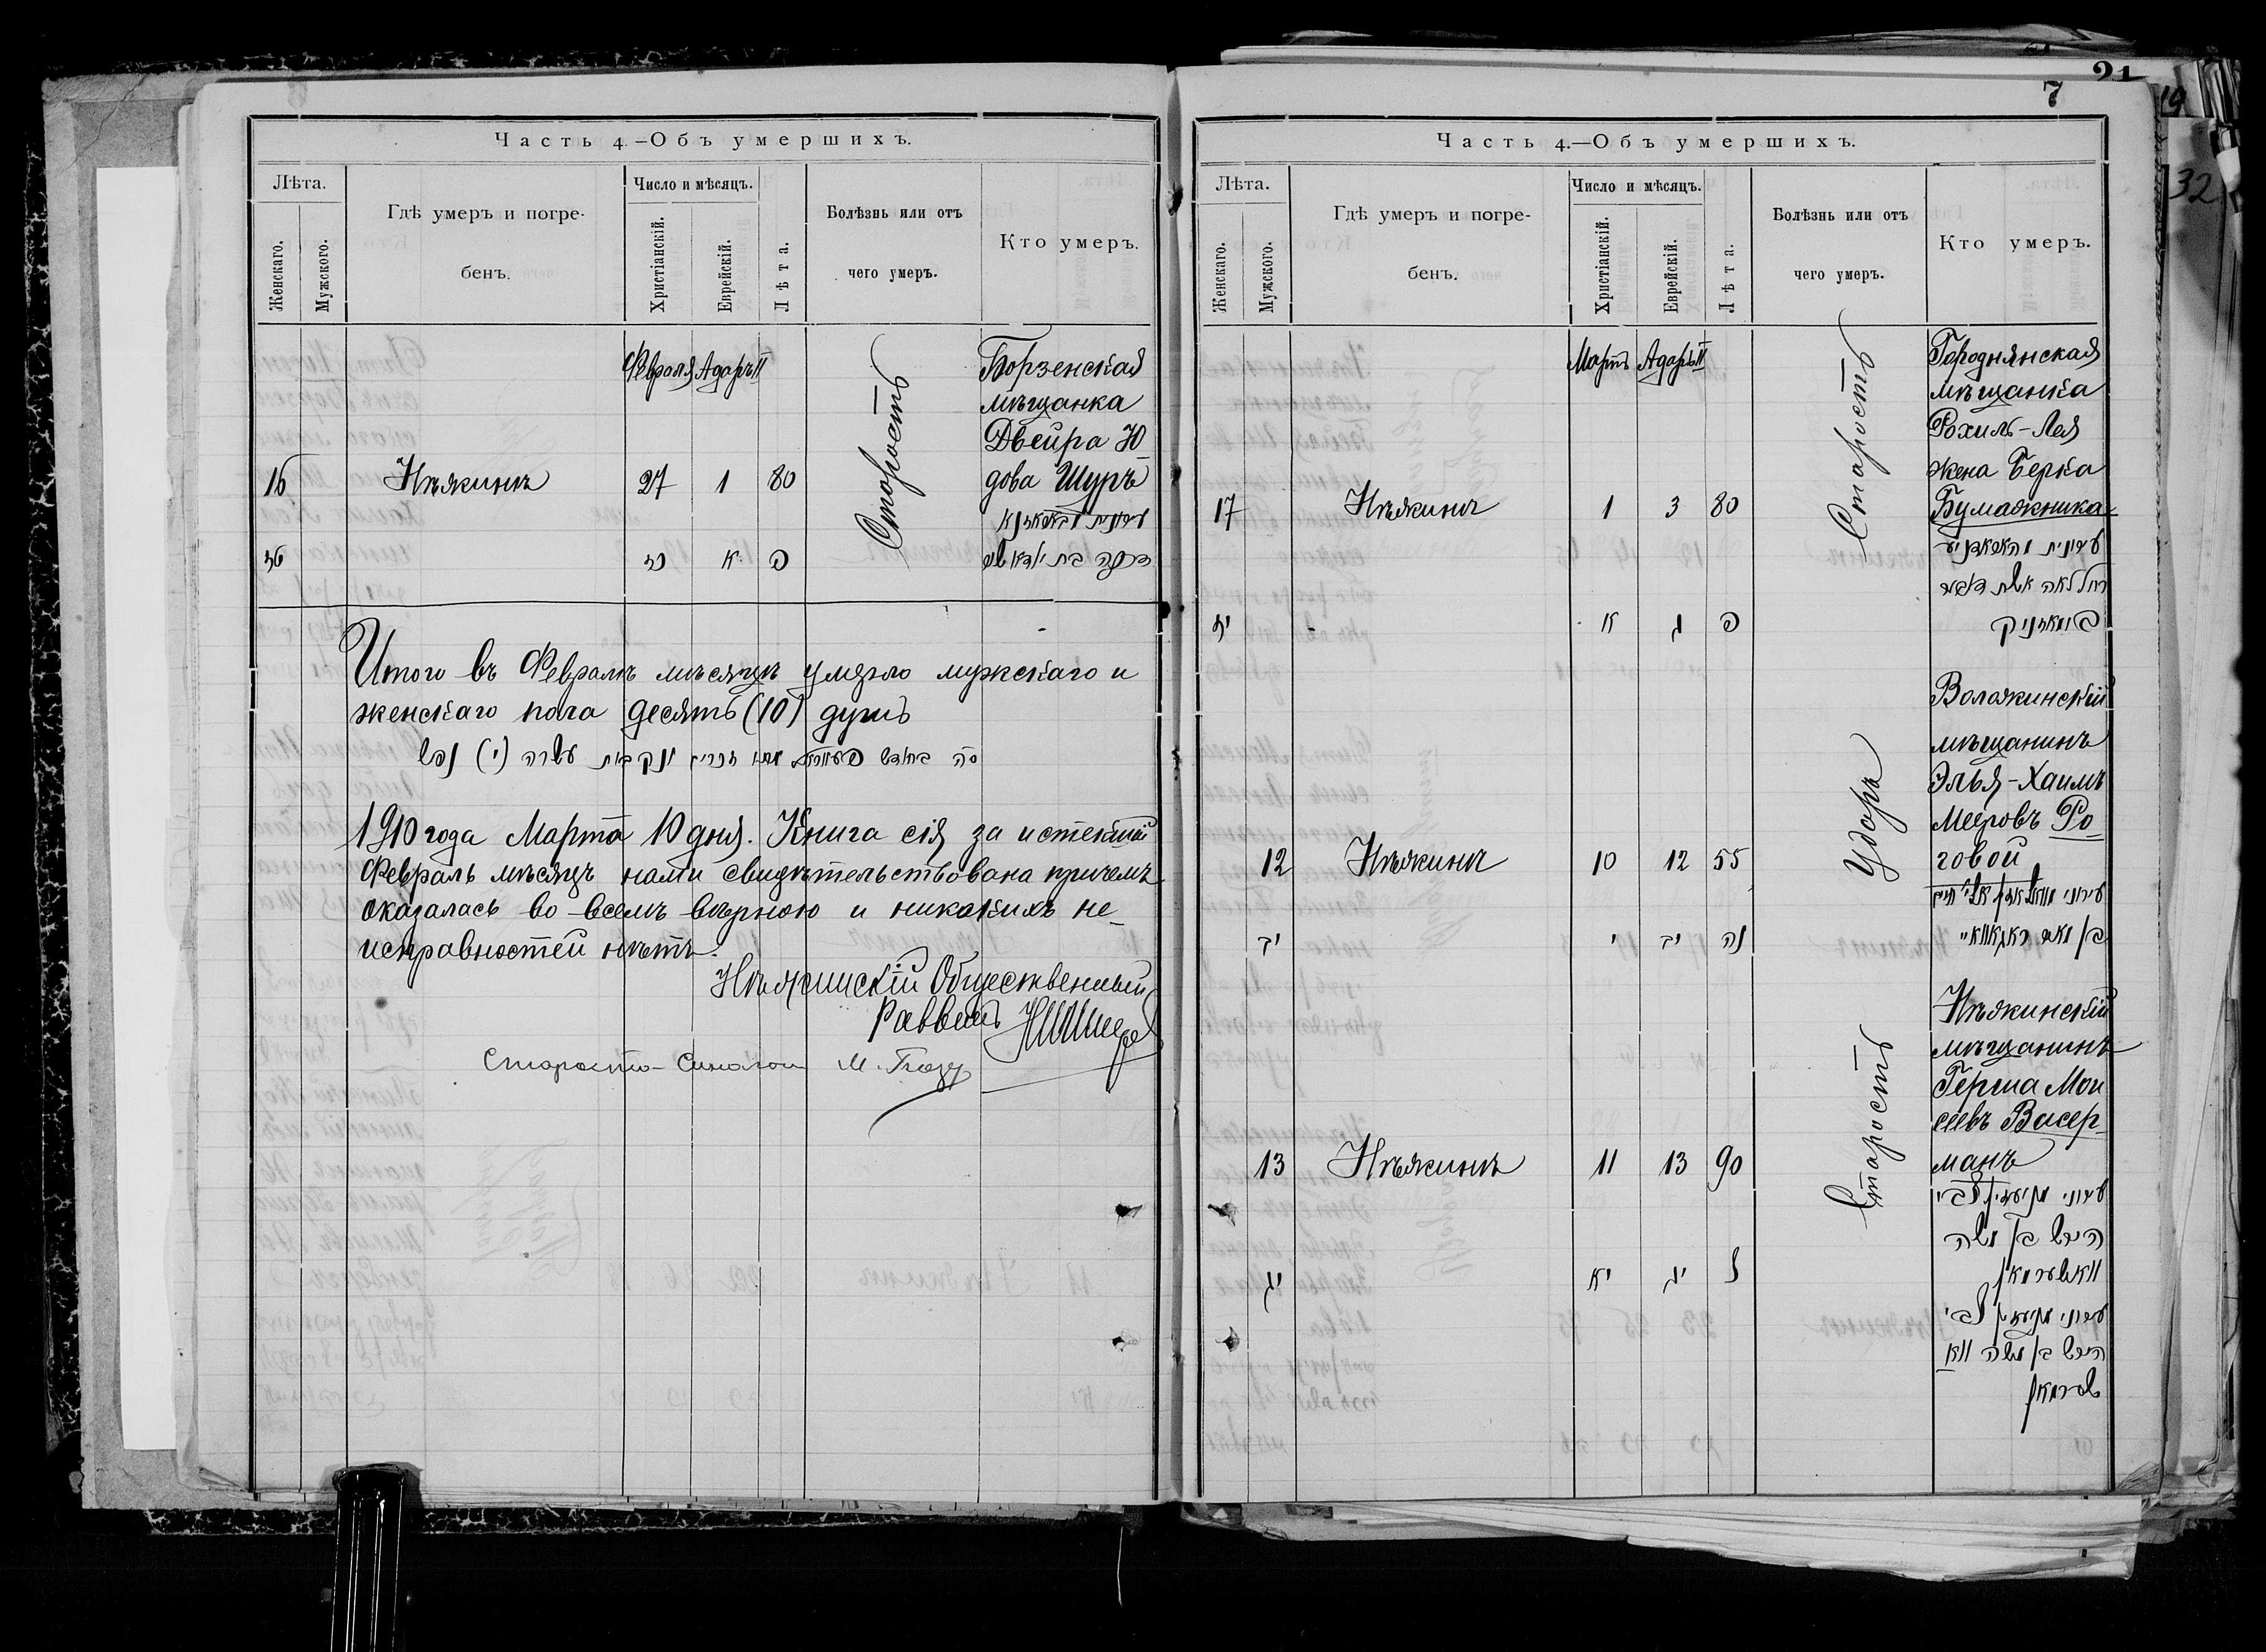 Часть 4.—Объ умершихъ.
Лѣта.
Женскаго.
Мужского.
Гдѣ умеръ и погре-
бенъ.
Число и мѣсяцъ.
Христіанскій.
Еврейскій.
Лѣта.
Болѣзнь или отъ
чего умеръ.
Кто умеръ.
Февраля Адаръ II
16 Нѣжинъ 27 1 80
Старость
Борзенская
мѣщанка
Двейра Ю
дова Шуръ
טז כז א פ
Итого въ Февралѣ мѣсяцѣ умерло мужскаго и
женскаго пола десять (10) душъ
סה בחודש זכרים ונקבות עשרה (י) נפש
1910 года Марта 10 дня. Книга сія за истекшій
Февраль мѣсяцъ нами свидѣтельствована причемъ
оказалась во всемъ вѣрною и никакихъ не-
исправностей нѣтъ.
Нѣжинскій Общественный
Раввинъ
Староста
7
21
19
32
Часть 4.—Объ умершихъ.
Лѣта.
Женскаго.
Мужского.
Гдѣ умеръ и погре-
бенъ.
Число и мѣсяцъ.
Христіанскій.
Еврейскій.
Лѣта.
Болѣзнь или отъ
чего умеръ.
Кто умеръ.
Мартъ Адаръ II
17 Нѣжинъ 1 3 80
Старость
Городнянская
мѣщанка
Рохиль-Лея
жена Берка
Бумажника
רחל לאה אשת
יז א ג פ
12 Нѣжинъ 10 12 55
Ударъ
Воложинскій
мѣщанинъ
Элья-Хаимъ
Мееровъ Ро
говой
יב י יב נה
13 Нѣжинъ 11 13 90
Старость
Нѣжинскій
мѣщанинъ
Герша Мои
сеевъ Васер-
манъ
הירש בן משה
וואסערמאן
יג יא יג צ
הירש בן משה ווא
סערמאן